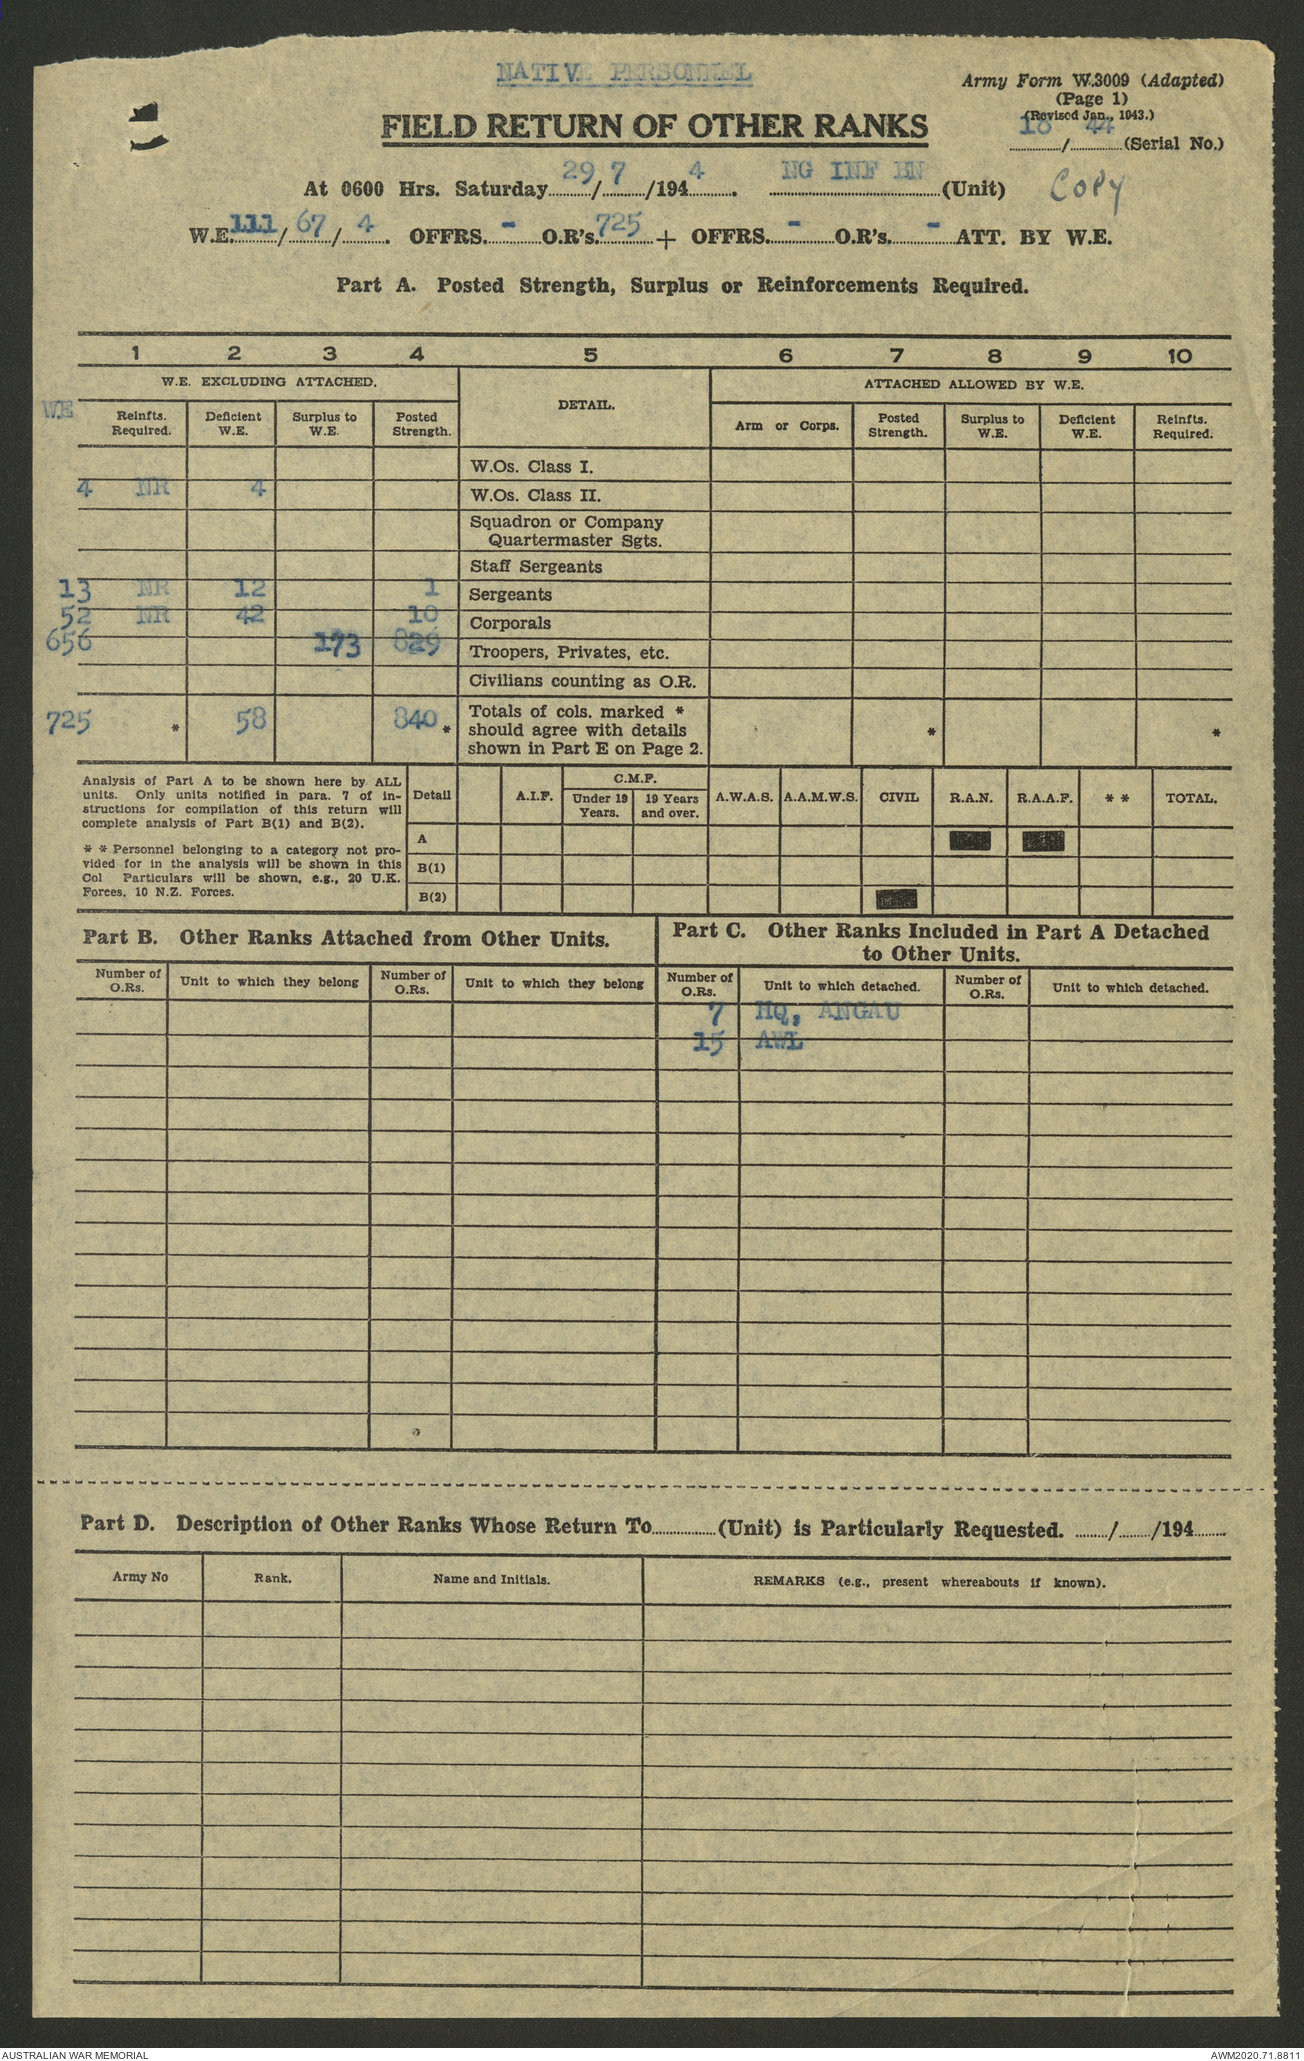 NATIVE PERSONNEL
Army Form W.3009 (Adapted)
(Page 1)
(Revised Jan., 1943.)
18/44 (Serial No.)
FIELD RETURN OF OTHER RANKS
At 0600 Hrs. Saturday 29/7/1944. NG INF BN (Unit) Copy
W.E. 111/67/4. OFFRS. - O.R's. 725 + OFFRS. - O.R's. - ATT. BY W.E.
Part A. Posted Strength, Surplus or Reinforcements Required.
1 2 3 4 5 6 7 8 9 10
W.E. EXCLUDING ATTACHED. DETAIL. ATTACHED ALLOWED BY W.E.
WE Reinfts. Required. Deficient W.E. Surplus to W.E. Posted Strength. Arm or Corps. Posted Strength. Surplus to W.E. Deficient W.E. Reinfts. Required.
W.Os. Class I.
4 NR 4 W.Os. Class II.
Squadron or Company
Quartermaster Sgts.
Staff Sergeants
13 NR 12 1 Sergeants
52 NR 42 10 Corporals
656 173 829 Troopers, Privates, etc.
Civilians counting as O.R.
725 * 58 840 * Totals of cols. marked * * *
should agree with details
shown in Part E on Page 2.
Analysis of Part A to be shown here by ALL
units. Only units notified in para. 7 of in-
structions for compilation of this return will
complete analysis of Part B(1) and B(2).
* * Personnel belonging to a category not pro-
vided for in the analysis will be shown in this
Col Particulars will be shown, e.g., 20 U.K.
Forces, 10 N.Z. Forces.
Detail A.I.F. C.M.F. Under 19 Years. 19 Years and over. A.W.A.S. A.A.M.W.S. CIVIL R.A.N. R.A.A.F. * * TOTAL.
A
B(1)
B(2)
Part B. Other Ranks Attached from Other Units.
Part C. Other Ranks Included in Part A Detached
to Other Units.
Number of O.Rs. Unit to which they belong Number of O.Rs. Unit to which they belong Number of O.Rs. Unit to which detached. Number of O.Rs. Unit to which detached.
7 HQ, ANGAU
15 AWL
Part D. Description of Other Ranks Whose Return To (Unit) is Particularly Requested. / /194
Army No Rank. Name and Initials. REMARKS (e.g., present whereabouts if known).
AUSTRALIAN WAR MEMORIAL
AWM2020.71.8811